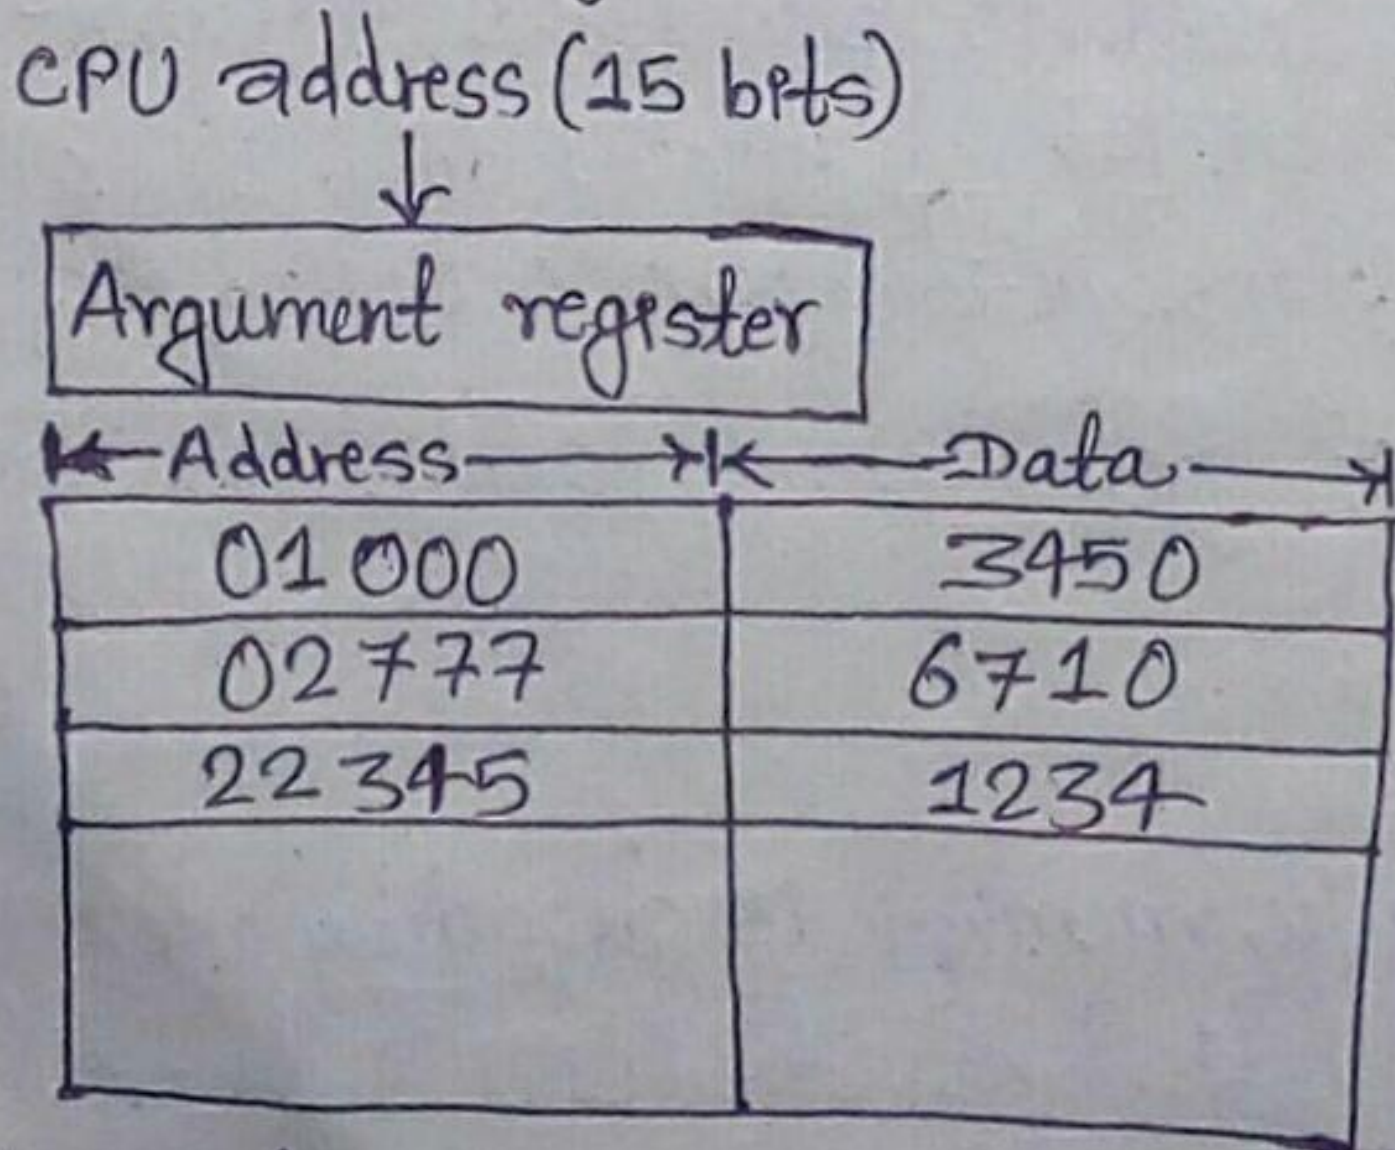 CPU address (15 bits)
Argument register
Address Data
01000 3450
02777 6710
22345 1234